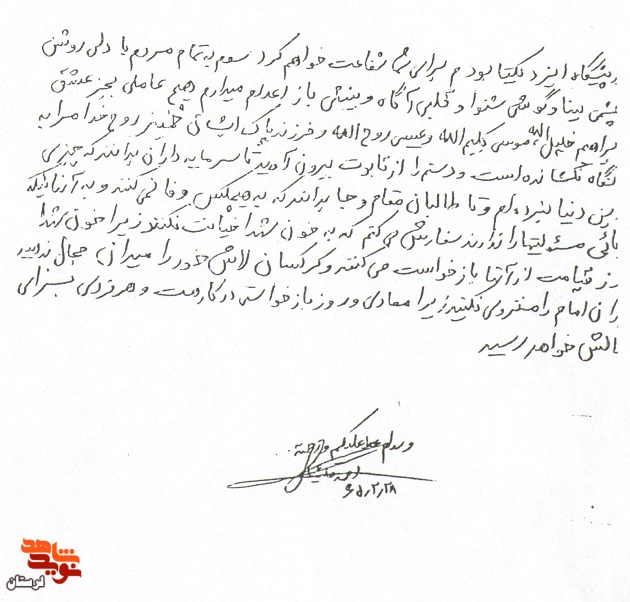 پیشگاه ایزد یکتا بودم برای شما شفاعت خواهم کرد سوم به تمام مردم با دلی روشن
چشمی بینا و گوشی شنوا و قلبی آگاه و بینشی باز اعلام میدارم هیچ عاملی بجز عشق
براهیم خلیل الله موسی کلیم الله و عیسی روح الله و فرزند پاک ایشان خمینی روح خدا مرا به
نگاه نکشانده است و دستم را از تابوت بیرون آورید تا سرمایه داران بدانند که چیزی
زین دنیا نبرده ام و تا طالبان مقام و جا بدانند که به هیچکس وفا نمی کند و به آنانیکه
مسئولیتها را دارند سفارش می کنم که به خون شهدا خیانت نکنند زیرا خون شهدا
رز قیامت از آنها بازخواست می کنند و کرکسان لاش خود را میدان جمال ندهید
ران امام را منزوی نکنید زیرا معادی و روز بازخواستی در کار است و هر فردی بسزای
مالش خواهد رسید
والسلام علیکم و رحمة
۶۵٫۲٫۲۸
نوید شاهد
لرستان